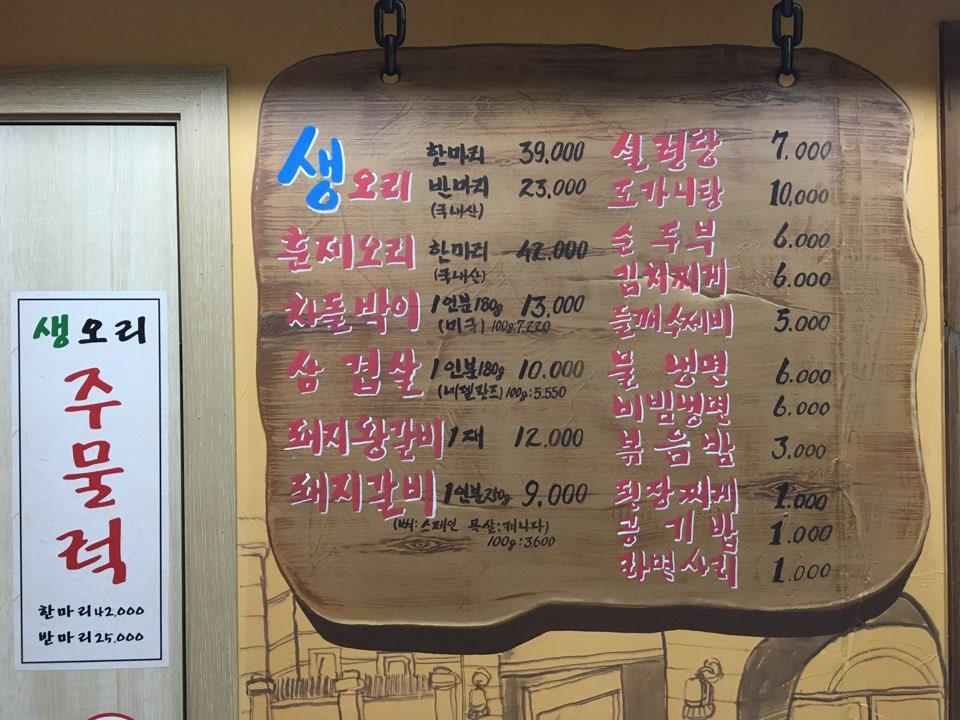 생오리
주물럭
한마리 42,000
반마리 25,000
생오리 한마리 39,000
반마리 23,000
(국내산)
훈제오리 한마리 42,000
(국내산)
차돌박이 1인분180g 13,000
(미국) 100g:7.220
삼겹살 1인분180g 10.000
(네델란드) 100g:5.550
돼지왕갈비 1대 12,000
돼지갈비 1인분250g 9,000
(뼈:스페인 목살:캐나다)
100g:3,600
설렁탕 7.000
도가니탕 10,000
순두부 6.000
김치찌게 6.000
들깨수제비 5.000
물냉면 6.000
비빔냉면 6.000
볶음밥 3.000
된장찌게 1.000
공기밥 1.000
라면사리 1.000